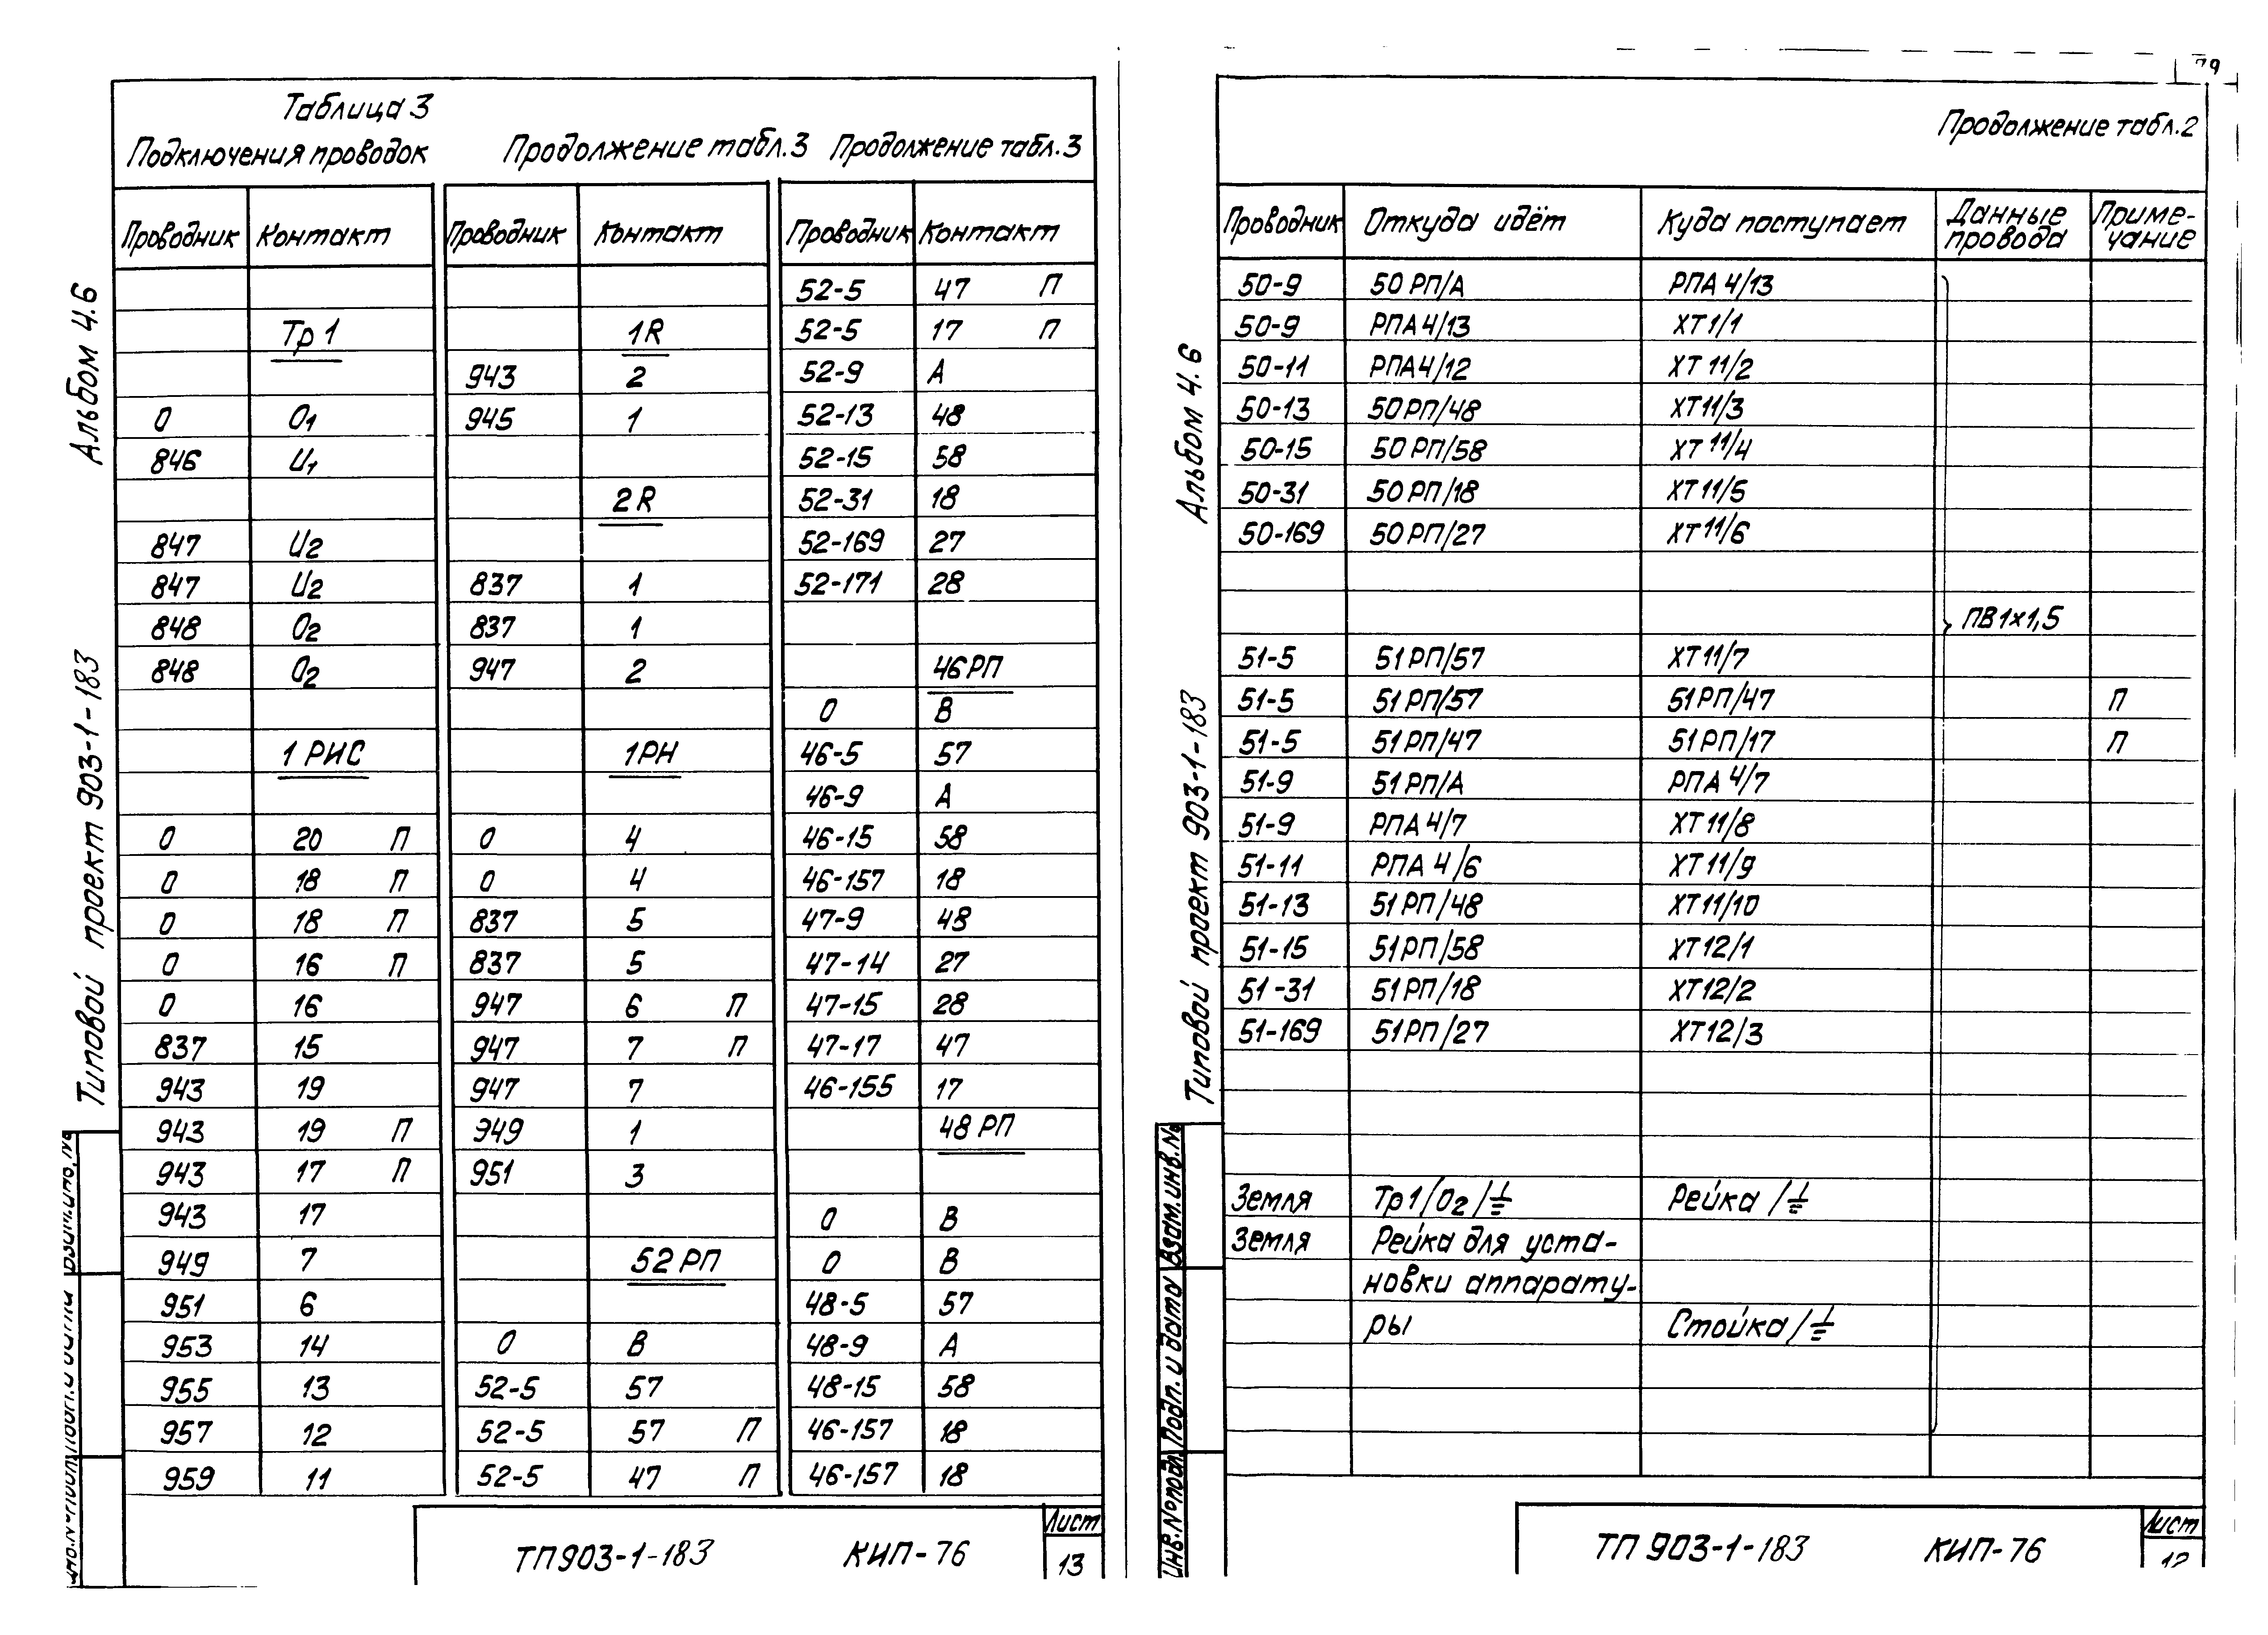 Альбом 4.6
Типовой проект 903-1-183
Таблица 3
Подключения проводок
Проводник Контакт
Тр 1
0 О1
846 U1
847 U2
847 U2
848 О2
848 О2
1 РИС
0 20 П
0 18 П
0 18 П
0 16 П
0 16
837 15
943 19
943 19 П
943 17 П
943 17
949 7
951 6
953 14
955 13
957 12
959 11
Продолжение табл.3
Проводник Контакт
1R
943 2
945 1
2R
837 1
837 1
947 2
1РН
0 4
0 4
837 5
837 5
947 6 П
947 7 П
947 7
949 1
951 3
52 РП
0 В
52-5 57
52-5 57 П
52-5 47 П
Продолжение табл.3
Проводник Контакт
52-5 47 П
52-5 17 П
52-9 А
52-13 48
52-15 58
52-31 18
52-169 27
52-171 28
46РП
0 В
46-5 57
46-9 А
46-15 58
46-157 18
47-9 48
47-14 27
47-15 28
47-17 47
46-155 17
48 РП
0 В
0 В
48-5 57
48-9 А
48-15 58
46-157 18
46-157 18
ТП903-1-183 КИП-76
Лист
13
Альбом 4.6
Типовой проект 903-1-183
Продолжение табл.2
Проводник Откуда идёт Куда поступает Данные провода Приме-чание
50-9 50 РП/А РПА 4/13
50-9 РПА4/13 ХТ1/1
50-11 РПА4/12 ХТ 11/2
50-13 50РП/48 ХТ11/3
50-15 50 РП/58 ХТ 11/4
50-31 50 РП/18 ХТ11/5
50-169 50 РП/27 ХТ11/6
ПВ1×1,5
51-5 51РП/57 ХТ11/7
51-5 51РП/57 51РП/47 П
51-5 51РП/47 51РП/17 П
51-9 51РП/А РПА 4/7
51-9 РПА4/7 ХТ11/8
51-11 РПА 4/6 ХТ11/9
51-13 51РП/48 ХТ11/10
51-15 51РП/58 ХТ12/1
51-31 51РП/18 ХТ12/2
51-169 51РП/27 ХТ12/3
Земля Тр1/О2/⏚ Рейка /⏚
Земля Рейка для уста-
новки аппарату-
ры Стойка/⏚
Инв.№подл. Подп. и дата Взам.инв.№
ТП 903-1-183 КИП-76
Лист
12